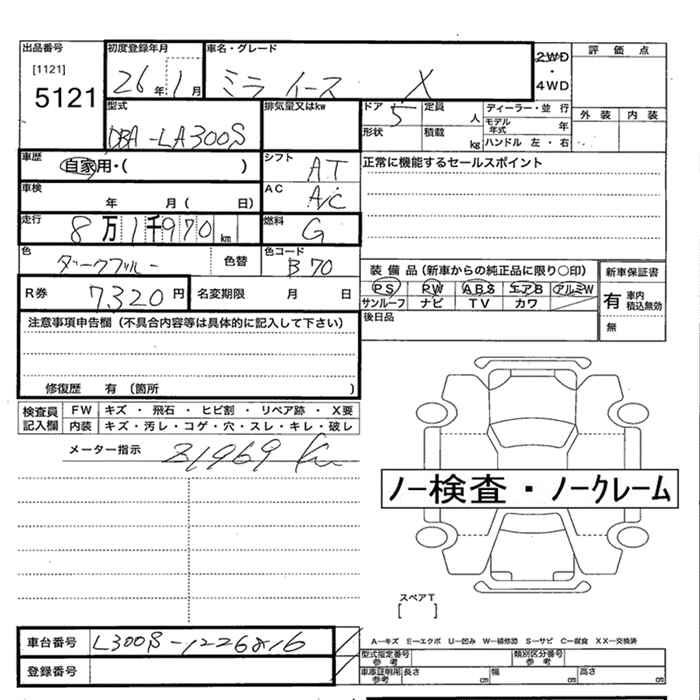 出品番号 初度登録年月 車名・グレード 2WD・4WD 評価点
[1121]
5121 26年1月 ミライース X
型式 排気量又はkw ドア 5 定員 人 ディーラー・並行 外装 内装
モデル年式 年
DBA-LA300S 形状 積載 kg ハンドル 左・右
車歴 自家用・( ) シフト AT 正常に機能するセールスポイント
車検 年 月 ( 日) AC A/C
走行 8万1千970km 燃料 G
色 ダークブルー 色替 色コード B70 装備品(新車からの純正品に限り○印) 新車保証書
R券 7320円 名変期限 月 日 PS PW ABS エアB アルミW 有 車内積込無効
サンルーフ ナビ TV カワ 無
注意事項申告欄(不具合内容等は具体的に記入して下さい) 後日品
修復歴 有 (箇所 )
検査員記入欄 FW キズ・飛石・ヒビ割・リペア跡・X要
内装 キズ・汚レ・コゲ・穴・スレ・キレ・破レ
メーター指示
ノー検査・ノークレーム
スペアT
[ ]
車台番号 A―キズ E―エクボ U―凹み W―補修跡 S―サビ C―腐食 XX―交換済
型式指定番号 参考 類別区分番号 参考
登録番号 車庫証明用 参考 長さ cm 幅 cm 高さ cm